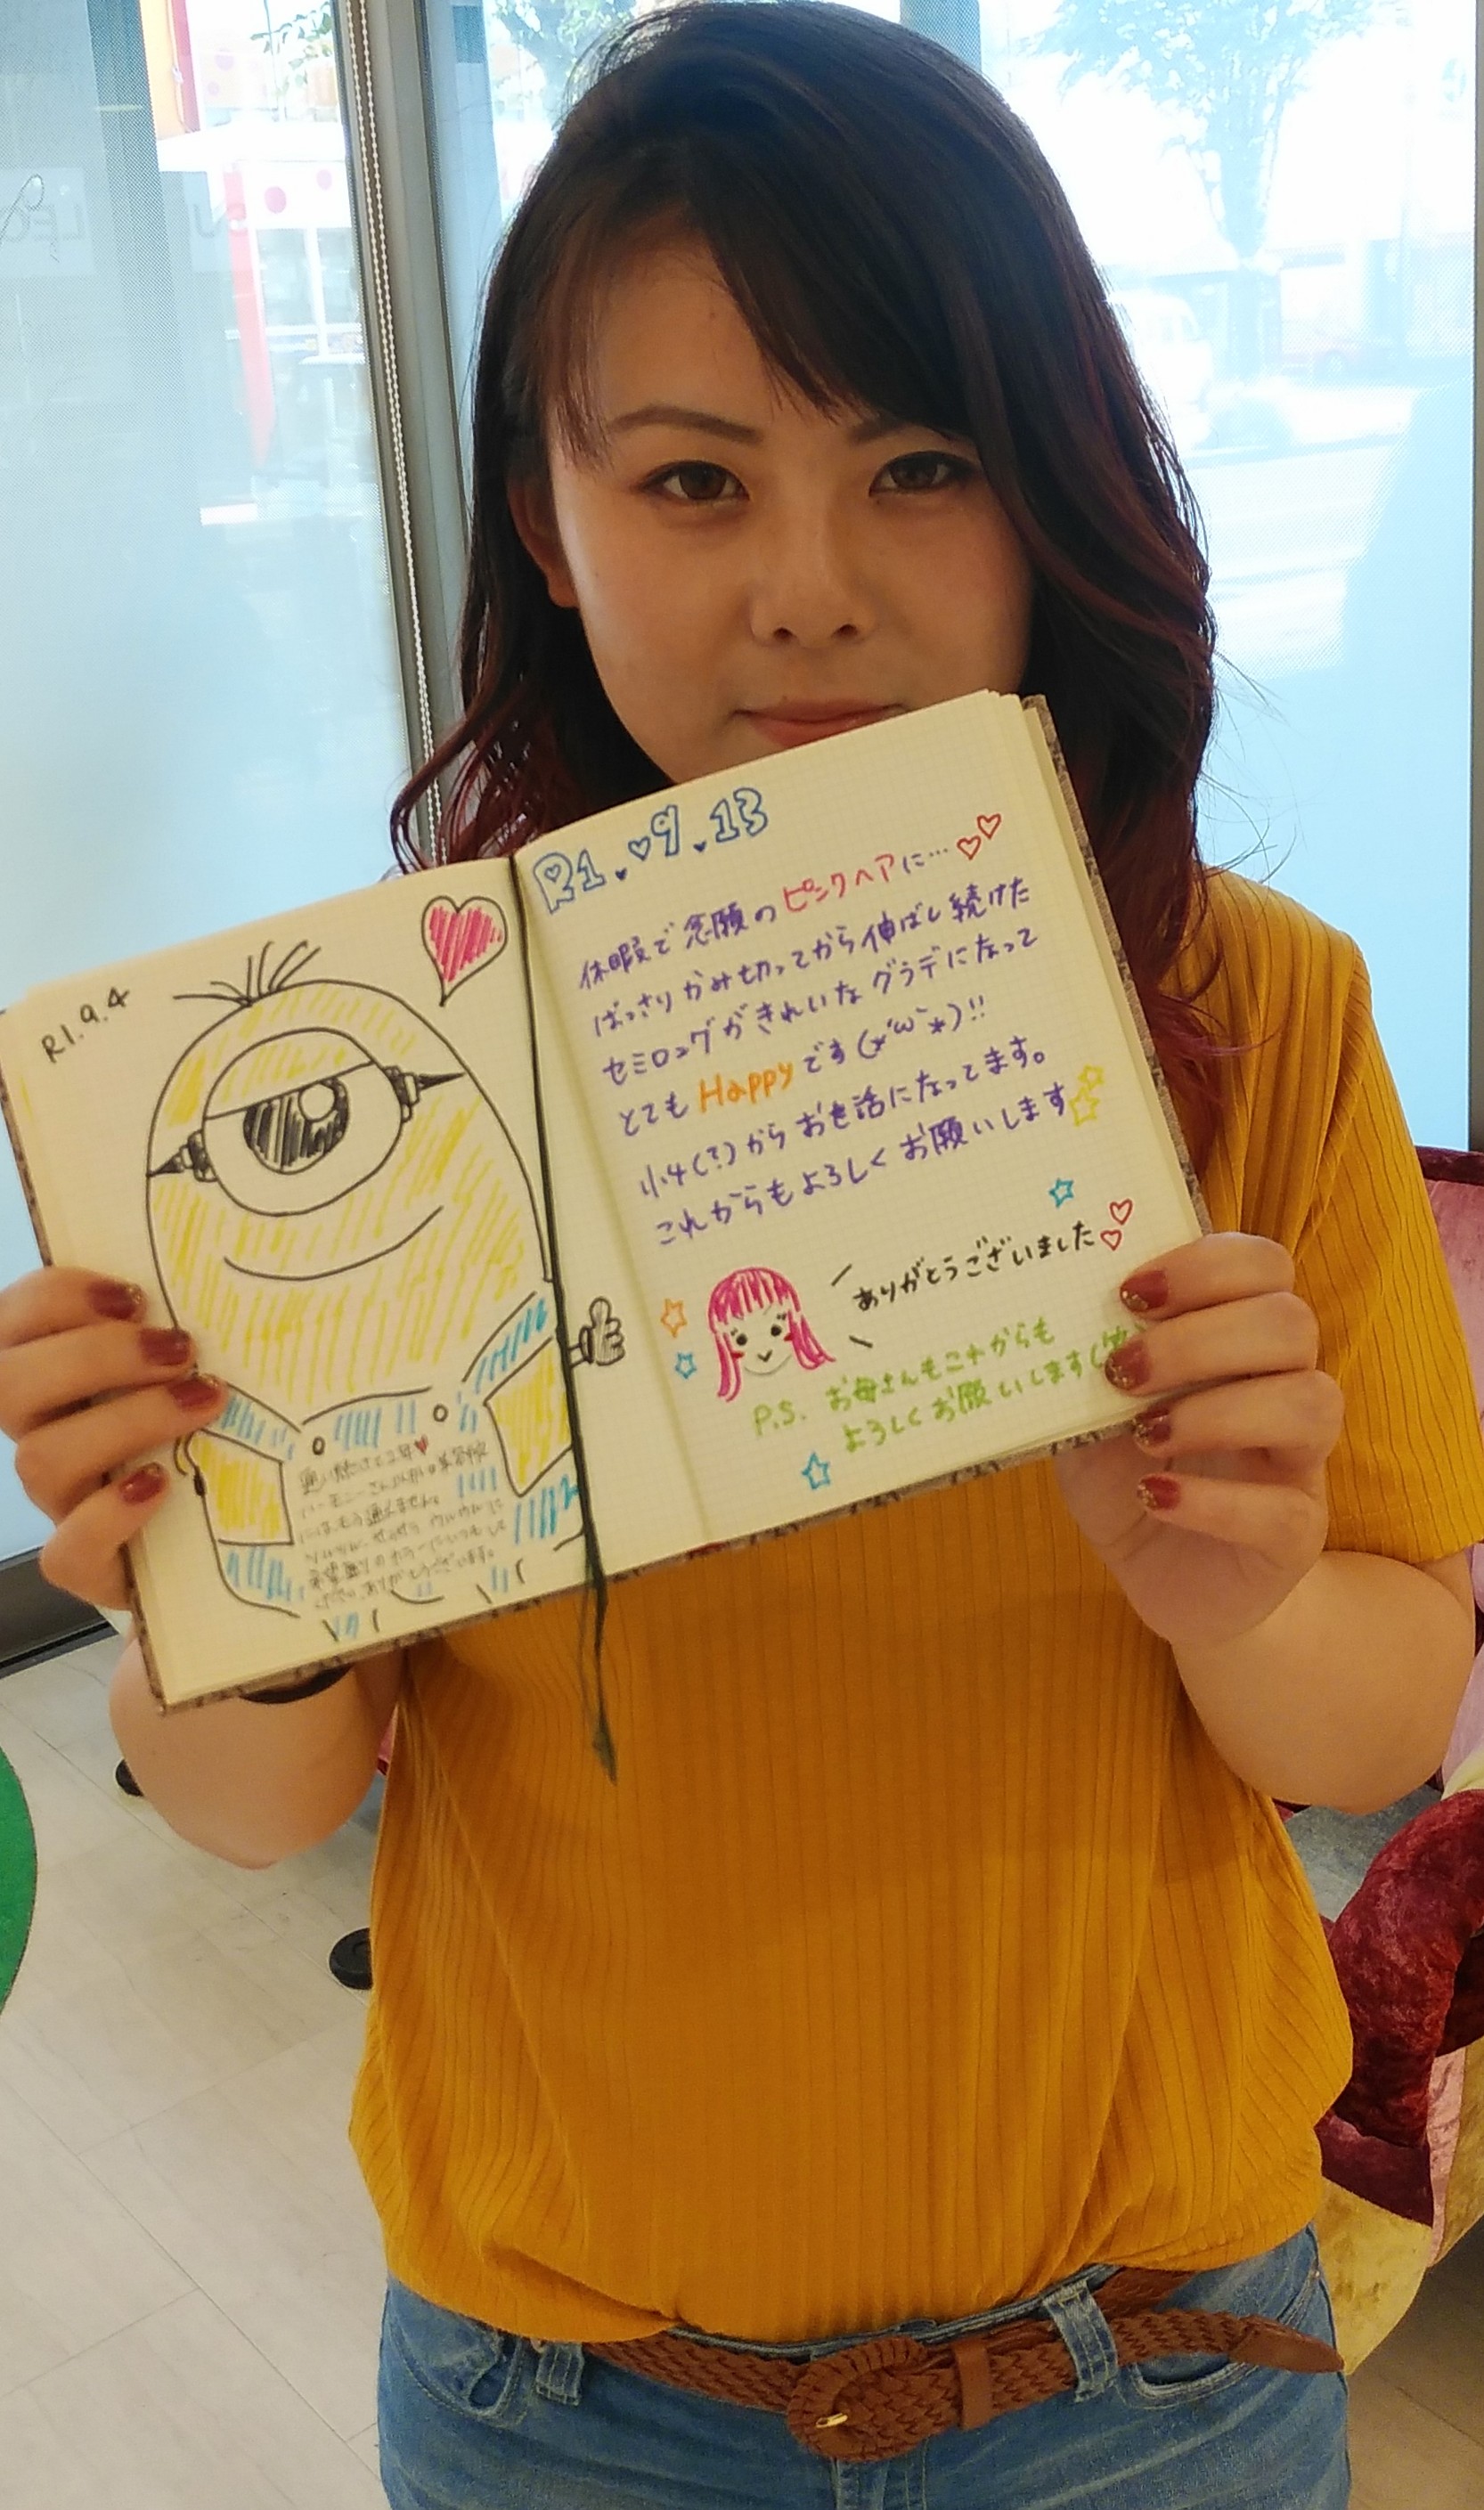 R1.9.4
通い続けて2年♥
ハーモニーさん以外の美容院
にはもう通えません。
いつも
希望通りのカラーにいつもして
ありがとうございます。
R1.♡9.13
休暇で念願のピンクヘアに…♡♡
ばっさりかみ切ってから伸ばし続けた
セミロングがきれいなグラデになって
とてもHappyです(*´ω`*)!!
小4(?)からお世話になってます。
これからもよろしくお願いします
ありがとうございました♡♡
P.S. お母さんもこれからも
よろしくお願いします(笑